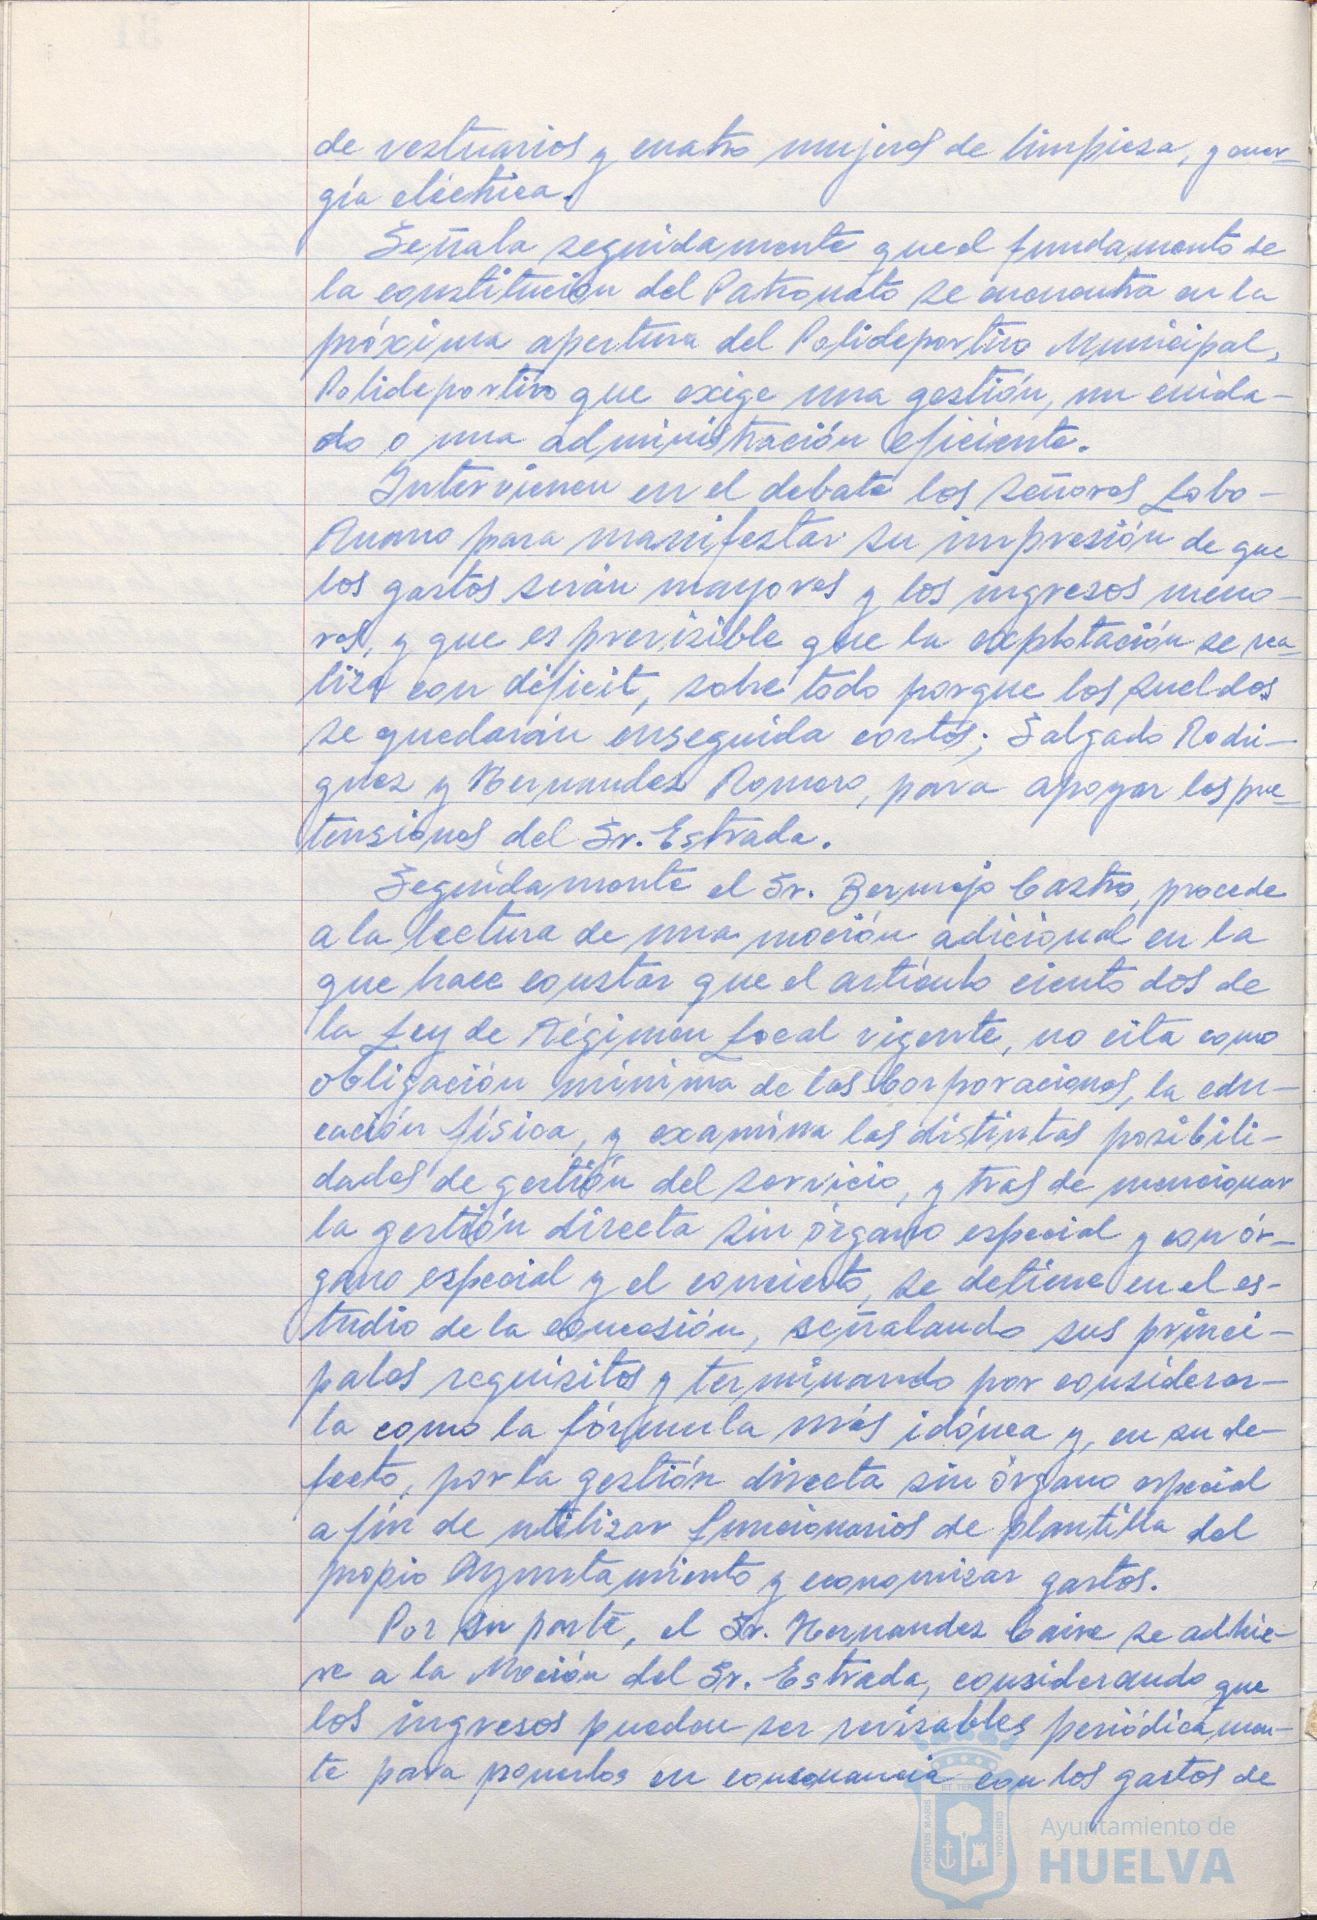 de vestuarios y cuatro mujeres de limpieza, y ener-
gía eléctrica.
Señala seguidamente que el fundamento de
la constitución del Patronato se encuentra en la
próxima apertura del Polideportivo Municipal,
Polideportivo que exige una gestión, un cuida-
do o una administración eficiente.
Intervienen en el debate los señores Lobo-
para manifestar su impresión de que
los gastos serán mayores y los ingresos meno-
res, y que es previsible que la explotación se rea-
liza con déficit, sobre todo porque los sueldos
se quedarán enseguida cortos; Salgado Rodrí-
guez y Hernandez Romero, para apoyar las pre-
tensiones del Sr. Estrada.
Seguidamente el Sr. Bermejo Castro, procede
a la lectura de una moción adicional en la
que hace constar que el artículo ciento dos de
la Ley de Régimen Local vigente, no cita como
obligación mínima de las Corporaciones, la edu-
cación física, y examina las distintas posibili-
dades de gestión del servicio, y tras de mencionar
la gestión directa sin órgano especial y con ór-
gano especial y el concierto, se detiene en el es-
tudio de la concesión, señalando sus princi-
pales requisitos y terminando por considerar-
la como la fórmula más idónea y, en su de-
fecto, por la gestión directa sin órgano especial
a fin de utilizar funcionarios de plantilla del
propio Ayuntamiento y economizar gastos.
Por su parte, el Sr. Hernandez Caire se adhie-
re a la Moción del Sr. Estrada, considerando que
los ingresos puedan ser revisables periódicamen-
te para ponerlos en consonancia con los gastos de
PORTUS MARIS ET TERRE CUSTODIA
Ayuntamiento de
HUELVA